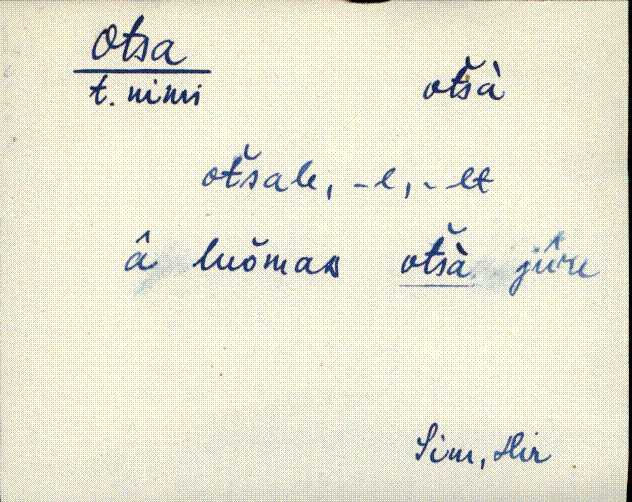 Otsa
t. nimi
otšà
otšale, -l, - lt
â luŏmaᴅ otšà jûru
Sim, Hir